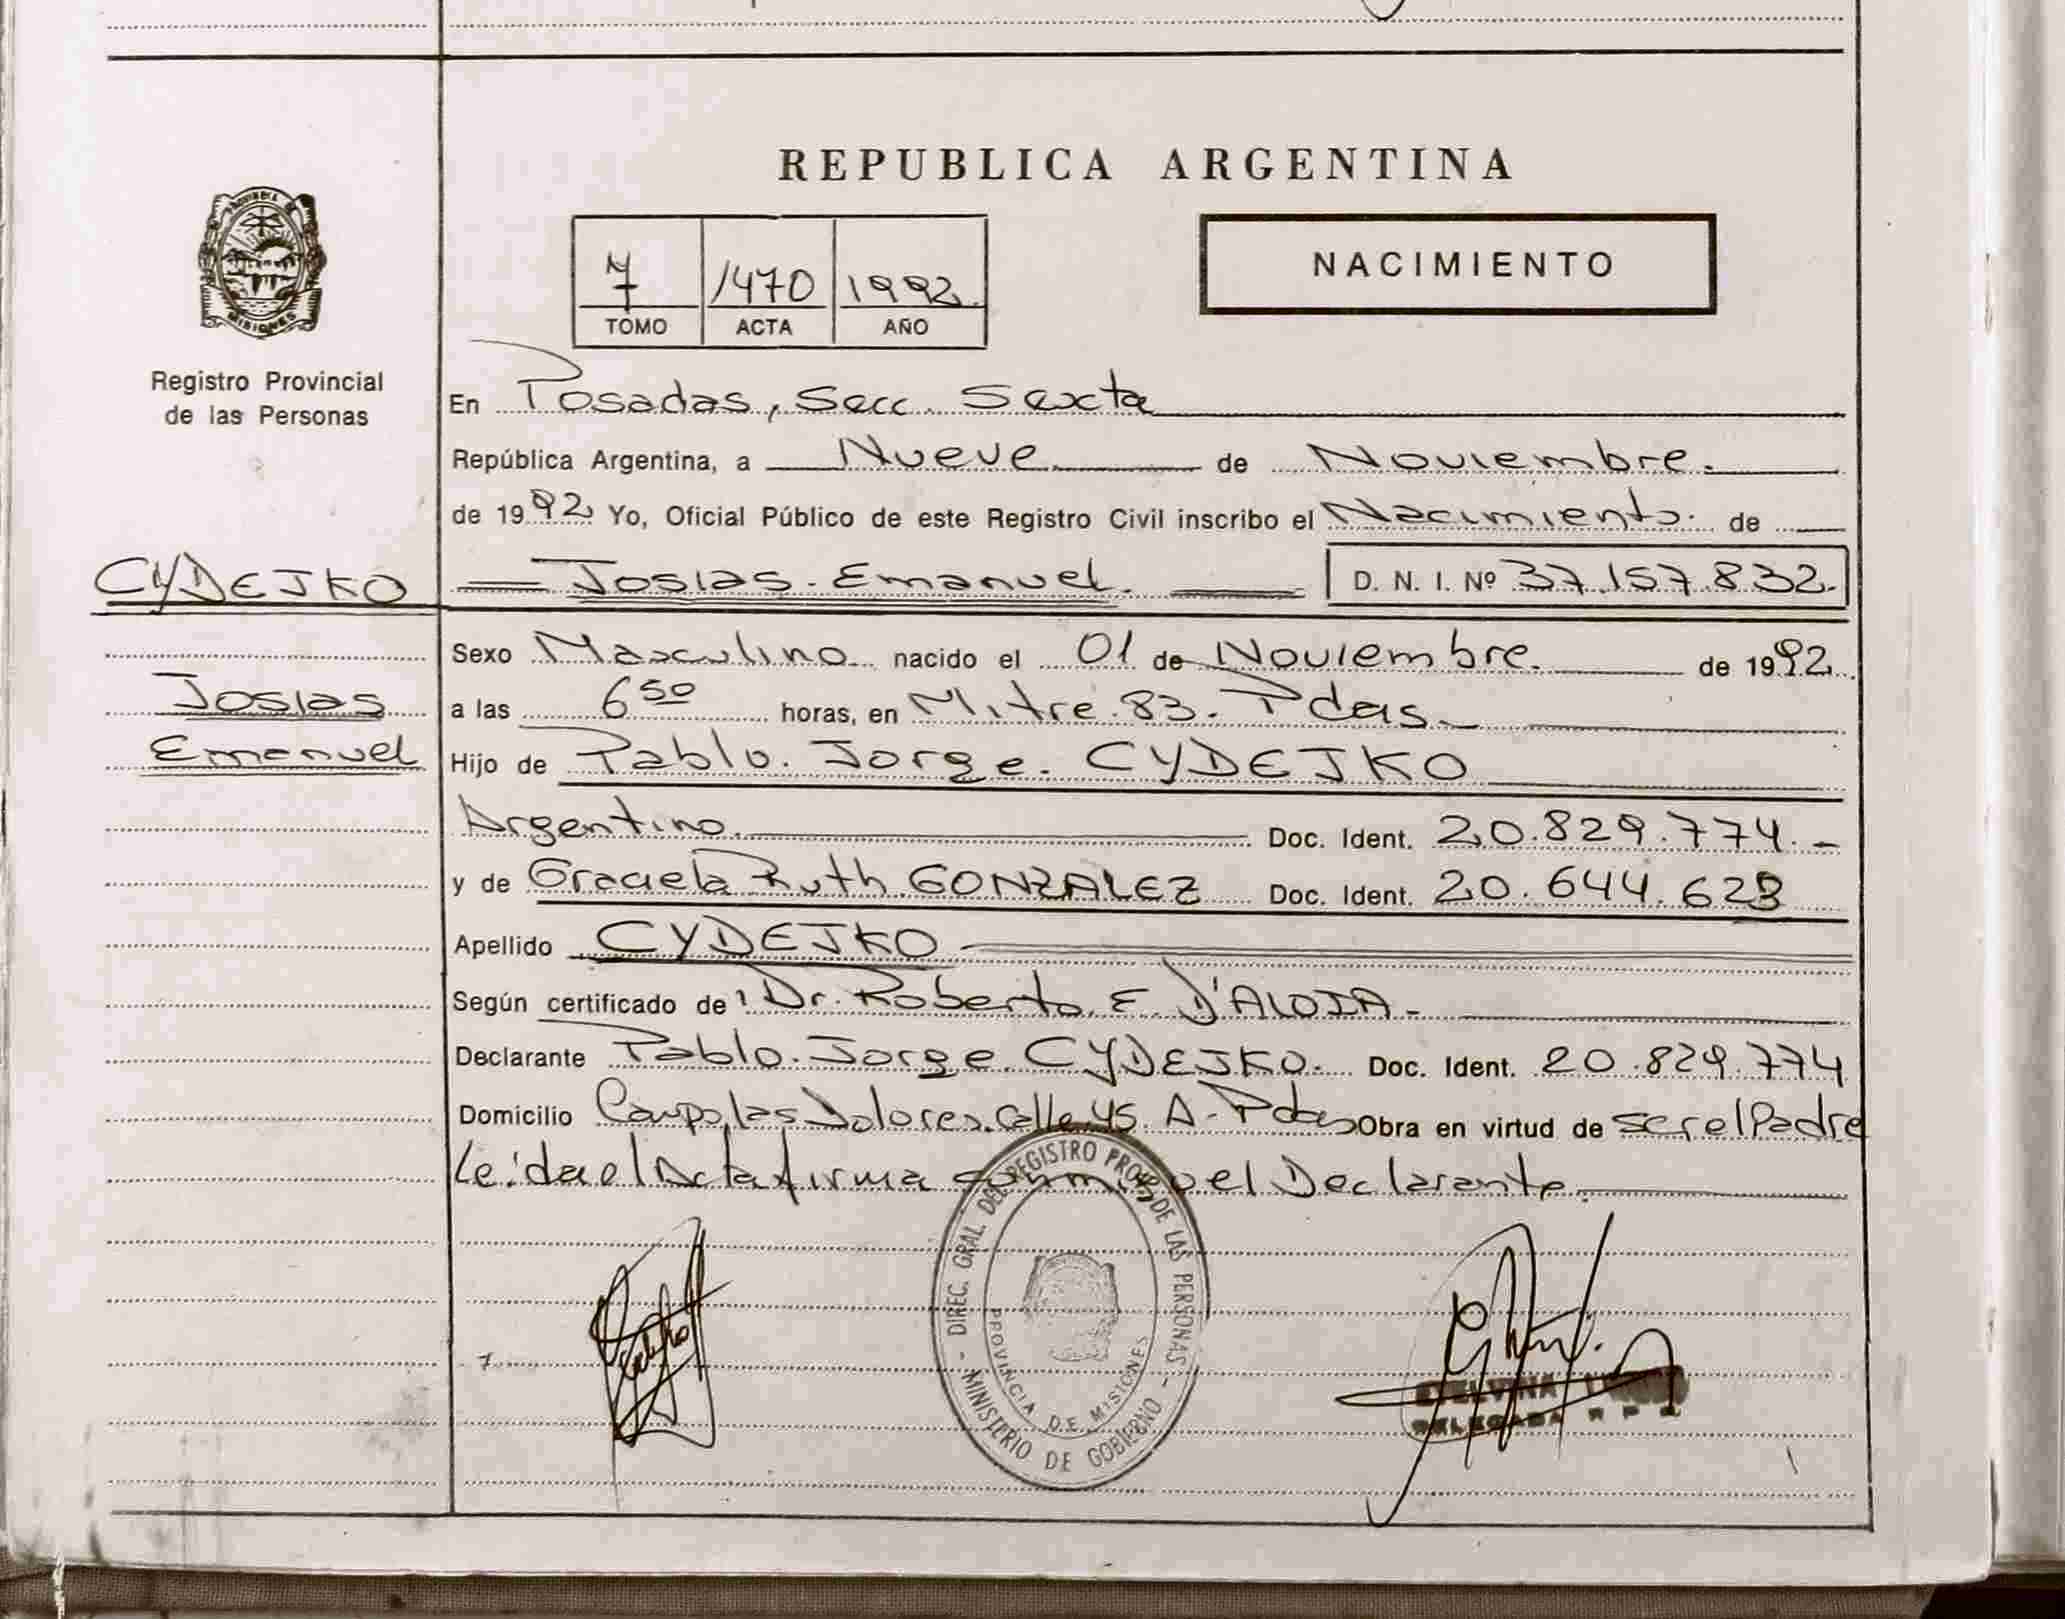 REPUBLICA ARGENTINA
NACIMIENTO
7 1470 1992
TOMO ACTA AÑO
PROVINCIA DE
MISIONES
Registro Provincial
de las Personas
En Posadas, Secc. Sexta
República Argentina, a Nueve de Noviembre.
de 1992 Yo, Oficial Público de este Registro Civil inscribo el Nacimiento de
CYDEJKO Josias Emanuel. D. N. I. Nº 37.157.832.
Sexo Masculino nacido el 01 de Noviembre. de 1992
Josias
a las 6 50 horas, en Mitre 83. Pdas.
Emanuel
Hijo de Pablo Jorge CYDEJKO
Argentino. Doc. Ident. 20.829.774.-
y de Graciela Ruth GONZALEZ Doc. Ident. 20.644.623
Apellido CYDEJKO
Según certificado de Dr. Roberto E. D'ALOIA.
Declarante Pablo Jorge CYDEJKO. Doc. Ident. 20.829.774
Domicilio las Dolores, Calle 45 A- Pdas Obra en virtud de ser el Padre
Leída el Acta firma el Declarante.
DIREC. GRAL. DEL REGISTRO PROV. DE LAS PERSONAS
PROVINCIA DE MISIONES
MINISTERIO DE GOBIERNO
DELEGADA R P